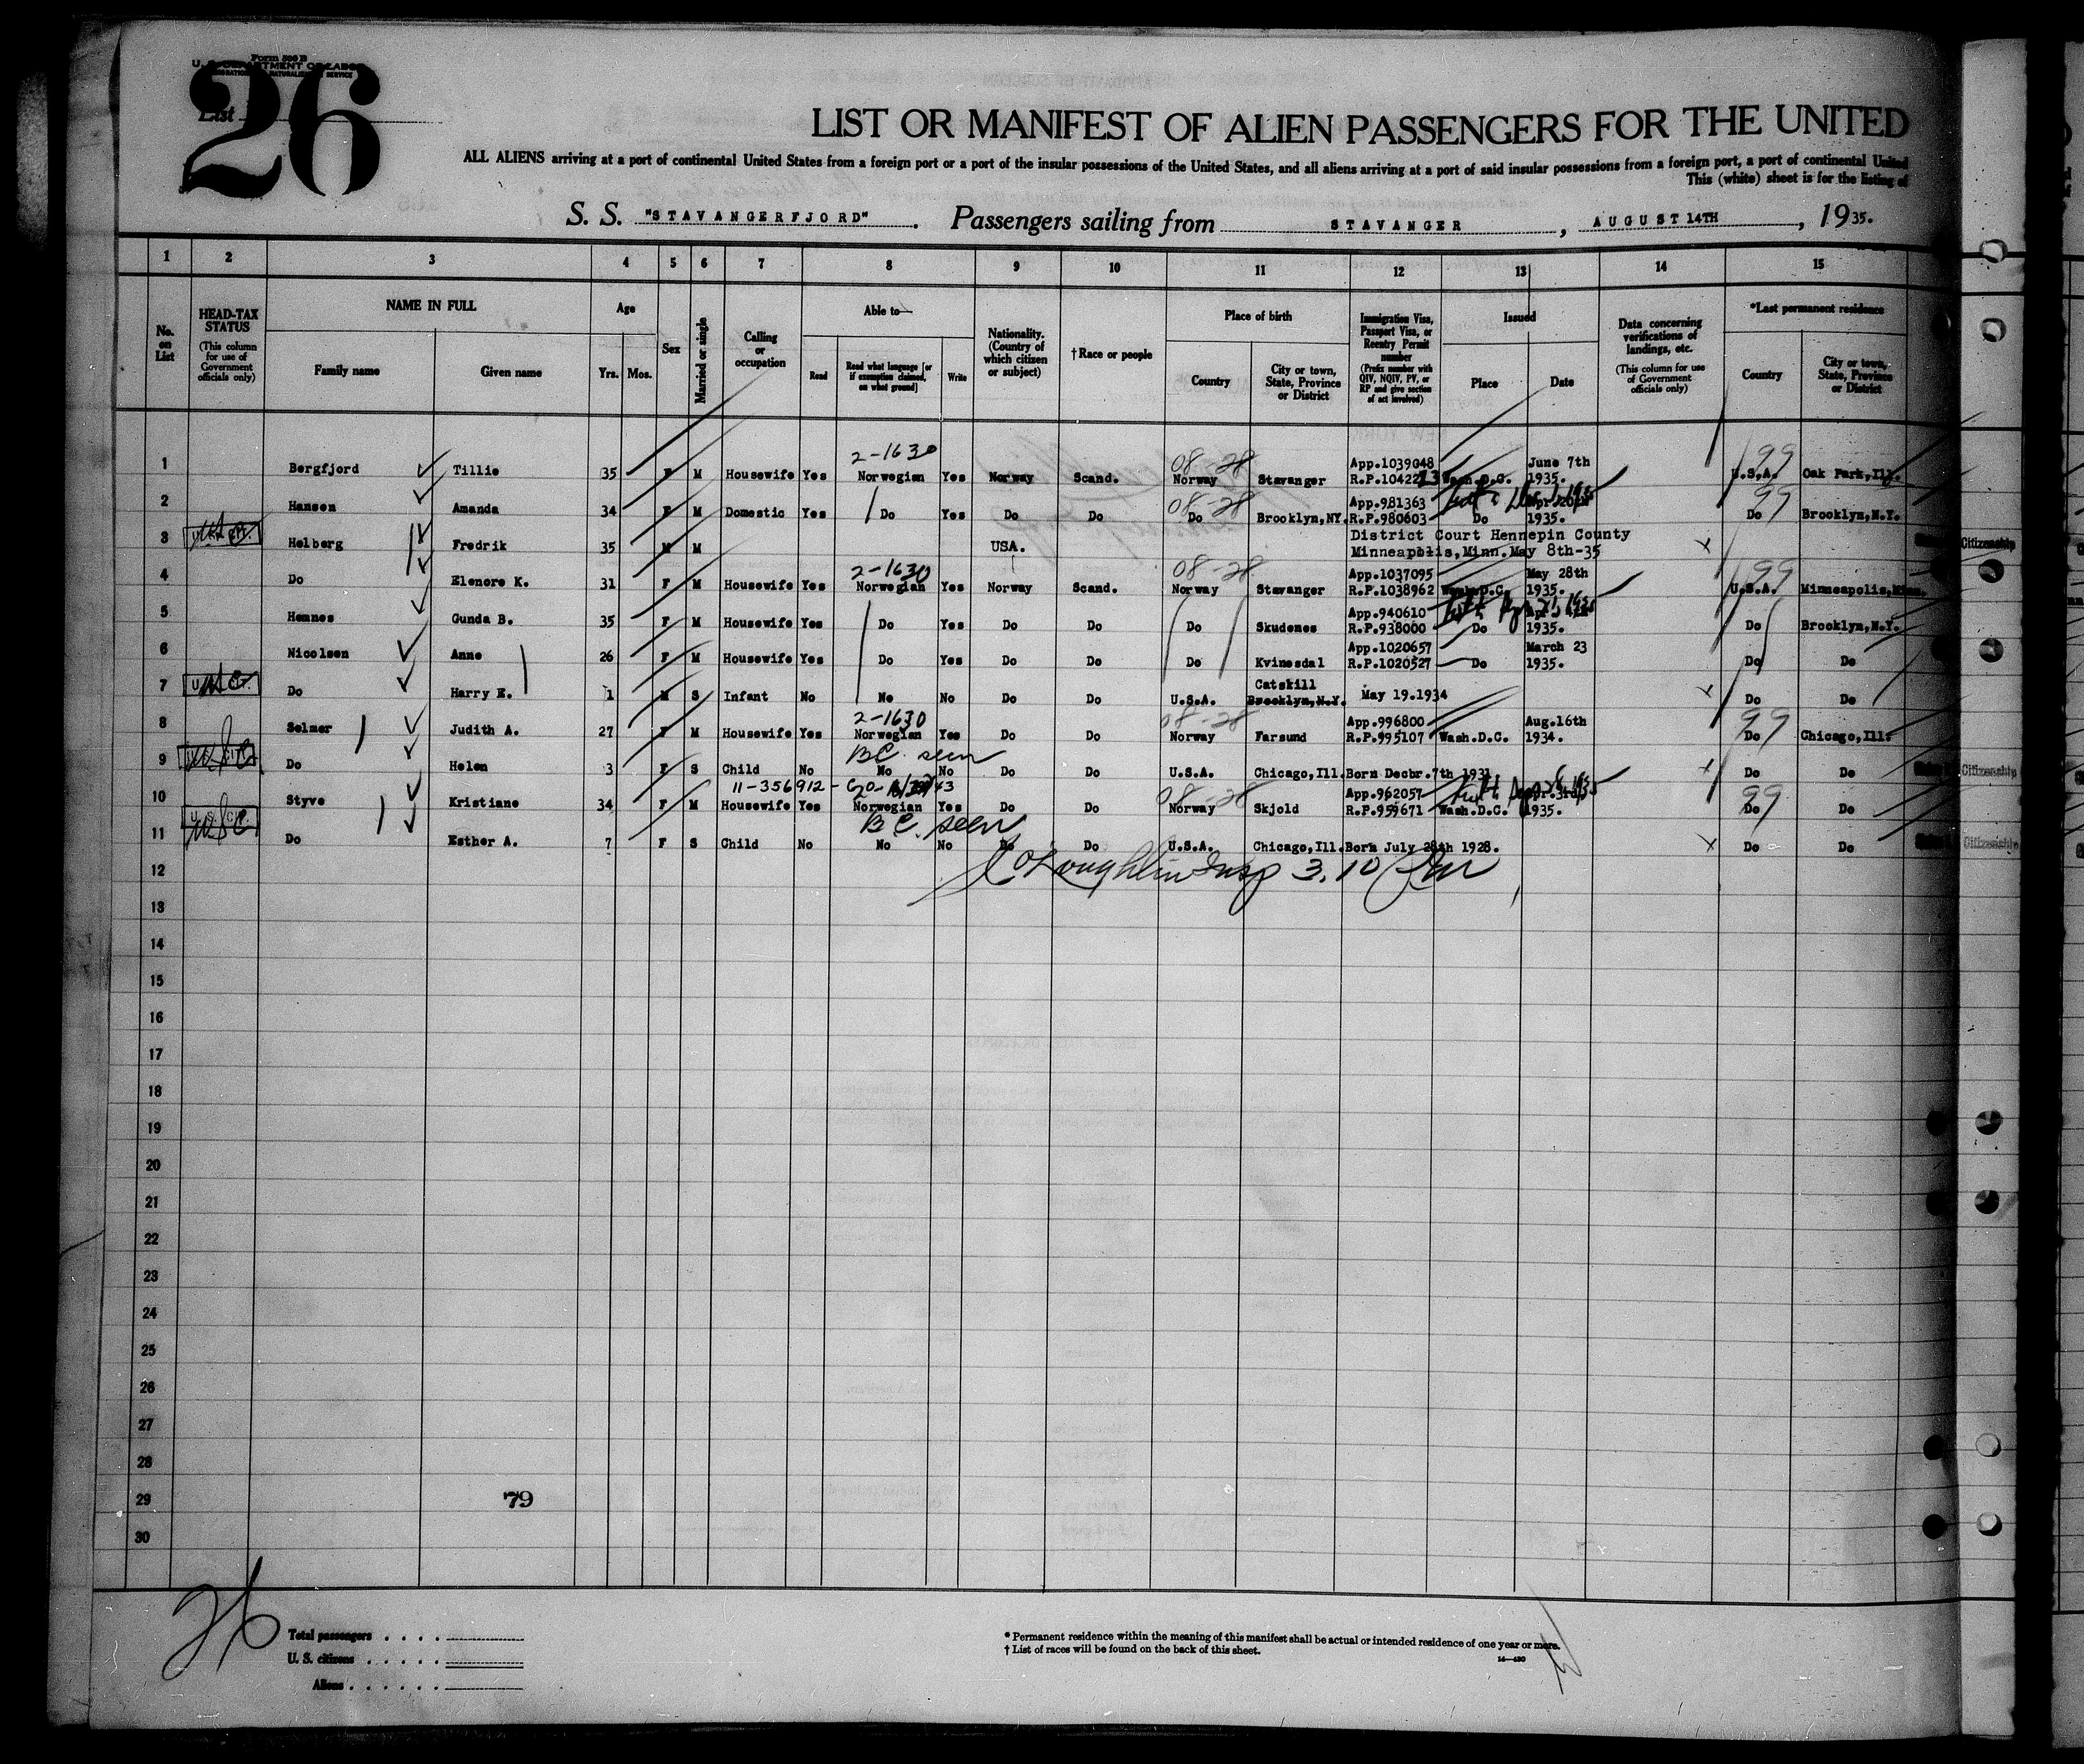 Form 500 B
U. S. DEPARTMENT OF LABOR
IMMIGRATION NATURALIZATION SERVICE
List
26
LIST OR MANIFEST OF ALIEN PASSENGERS FOR THE UNITED
ALL ALIENS arriving at a port of continental United States from a foreign port or a port of the insular possessions of the United States, and all aliens arriving at a port of said insular possessions from a foreign port, a port of continental United
This (white) sheet is for the listing of
S. S. "STAVANGERFJORD". Passengers sailing from STAVANGER, AUGUST 14TH, 1935.
1 2 3 4 5 6 7 8 9 10 11 12 13 14 15
No. on List
HEAD-TAX STATUS (This column for use of Government officials only)
NAME IN FULL
Family name
Given name
Age
Yrs. Mos.
Sex
Married or single
Calling or occupation
Able to—
Read
Read what language [or if exemption claimed, on what ground]
Write
Nationality. (Country of which citizen or subject)
†Race or people
Place of birth
Country
City or town, State, Province or District
Immigration Visa, Passport Visa, or Reentry Permit number (Prefix number with QIV, NQIV, PV, or RP and give section of act involved)
Issued
Place
Date
Data concerning verifications of landings, etc. (This column for use of Government officials only)
*Last permanent residence
Country
City or town, State, Province or District
2-1630 08-28 App.1039048 June 7th 99
1 Bergfjord Tillie 35 F M Housewife Yes Norwegian Yes Norway Scand. Norway Stavanger R.P.104227 Wash.D.C. 1935. U.S.A. Oak Park,Ill.
08-28 App.981363 99
2 Hansen Amanda 34 F M Domestic Yes Do Yes Do Do Do Brooklyn,NY. R.P.980603 Do 1935. Do Brooklyn,N.Y.
District Court Hennepin County
3 Helberg Fredrik 35 M M USA. Minneapolis,Minn.May 8th-35 Citizenship
2-1630 08-28 App.1037095 May 28th 99
4 Do Elenore K. 31 F M Housewife Yes Norwegian Yes Norway Scand. Norway Stavanger R.P.1038962 Wash.D.C. 1935. U.S.A. Minneapolis,Minn.
App.940610
5 Hemnes Gunda B. 35 F M Housewife Yes Do Yes Do Do Do Skudenes R.P.938000 Do 1935. Do Brooklyn,N.Y.
App.1020657 March 23
6 Nicolsen Anne 26 F M Housewife Yes Do Yes Do Do Do Kvinesdal R.P.1020527 Do 1935. Do Do
Catskill
7 Do Harry E. 1 M S Infant No No No Do Do U.S.A. Brooklyn,N.Y. May 19.1934 Do Do
2-1630 08-28 App.996800 Aug.16th 99
8 Selmer Judith A. 27 F M Housewife Yes Norwegian Yes Do Do Norway Farsund R.P.995107 Wash.D.C. 1934. Do Chicago,Ill.
BC. seen
9 Do Helen 3 F S Child No No No Do Do U.S.A. Chicago,Ill.Born Decbr.7th 1931 Do Do Citizenship
11-356912 08-28 App.962057 99
10 Styve Kristiane 34 F M Housewife Yes Norwegian Yes Do Do Norway Skjold R.P.959671 Wash.D.C. 1935. Do Do
BC. seen
11 Do Esther A. 7 F S Child No No No Do Do U.S.A. Chicago,Ill.Born July 28th 1928. Do Do Citizenship
12 Insp 3.10
13
14
15
16
17
18
19
20
21
22
23
24
25
26
27
28
29 79
30
26
Total passengers . . . .
U. S. citizens . . . . .
Aliens . . . . . .
* Permanent residence within the meaning of this manifest shall be actual or intended residence of one year or more.
† List of races will be found on the back of this sheet.
14—430